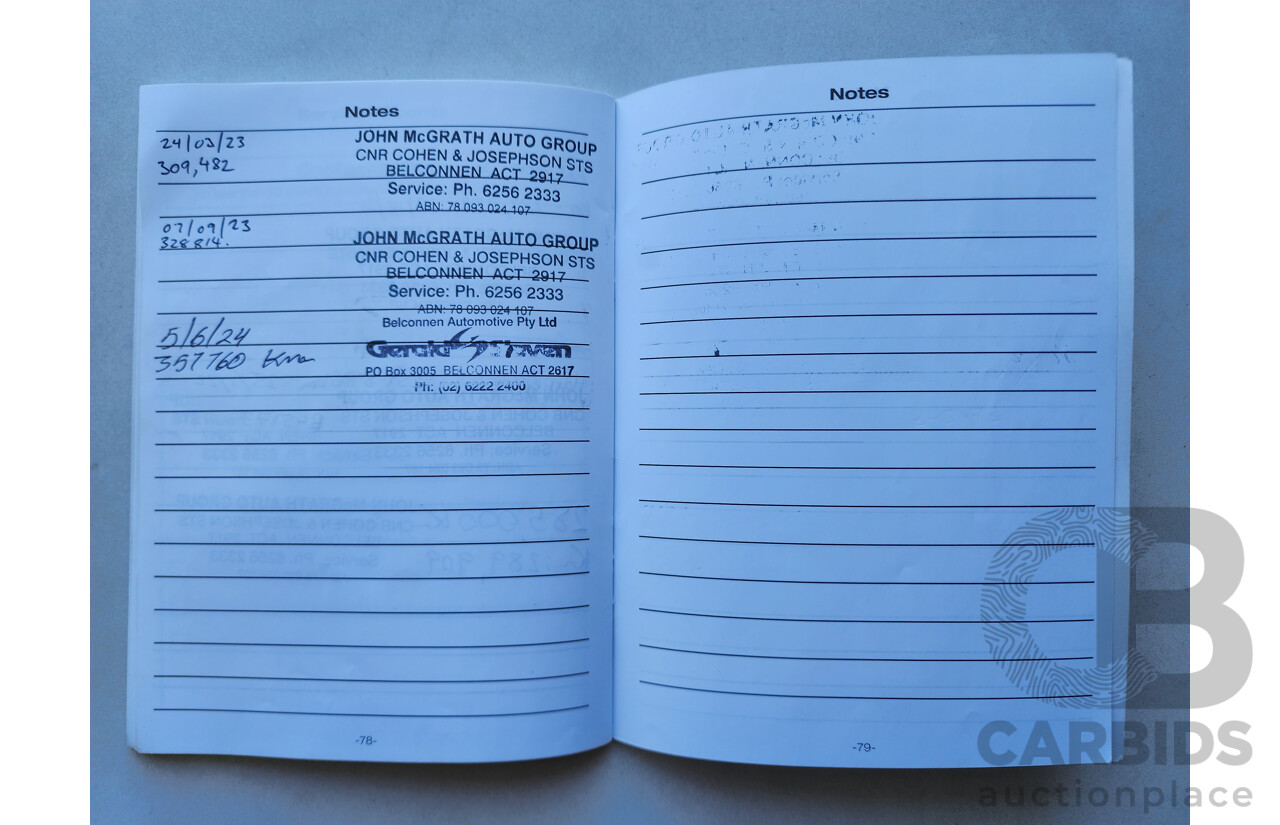 Notes
24/03/23
309,482
JOHN McGRATH AUTO GROUP
CNR COHEN & JOSEPHSON STS
BELCONNEN ACT 2917
Service: Ph. 6256 2333
ABN: 78 093 024 107
07/09/23
328814.
JOHN McGRATH AUTO GROUP
CNR COHEN & JOSEPHSON STS
BELCONNEN ACT 2917
Service: Ph. 6256 2333
ABN: 78 093 024 107
5/6/24
357760 Kms
Belconnen Automotive Pty Ltd
Gerald Slaven
PO Box 3005 BELCONNEN ACT 2617
Ph: (02) 6222 2400
-78-
Notes
-79-
CB
CARBIDS
auctionplace